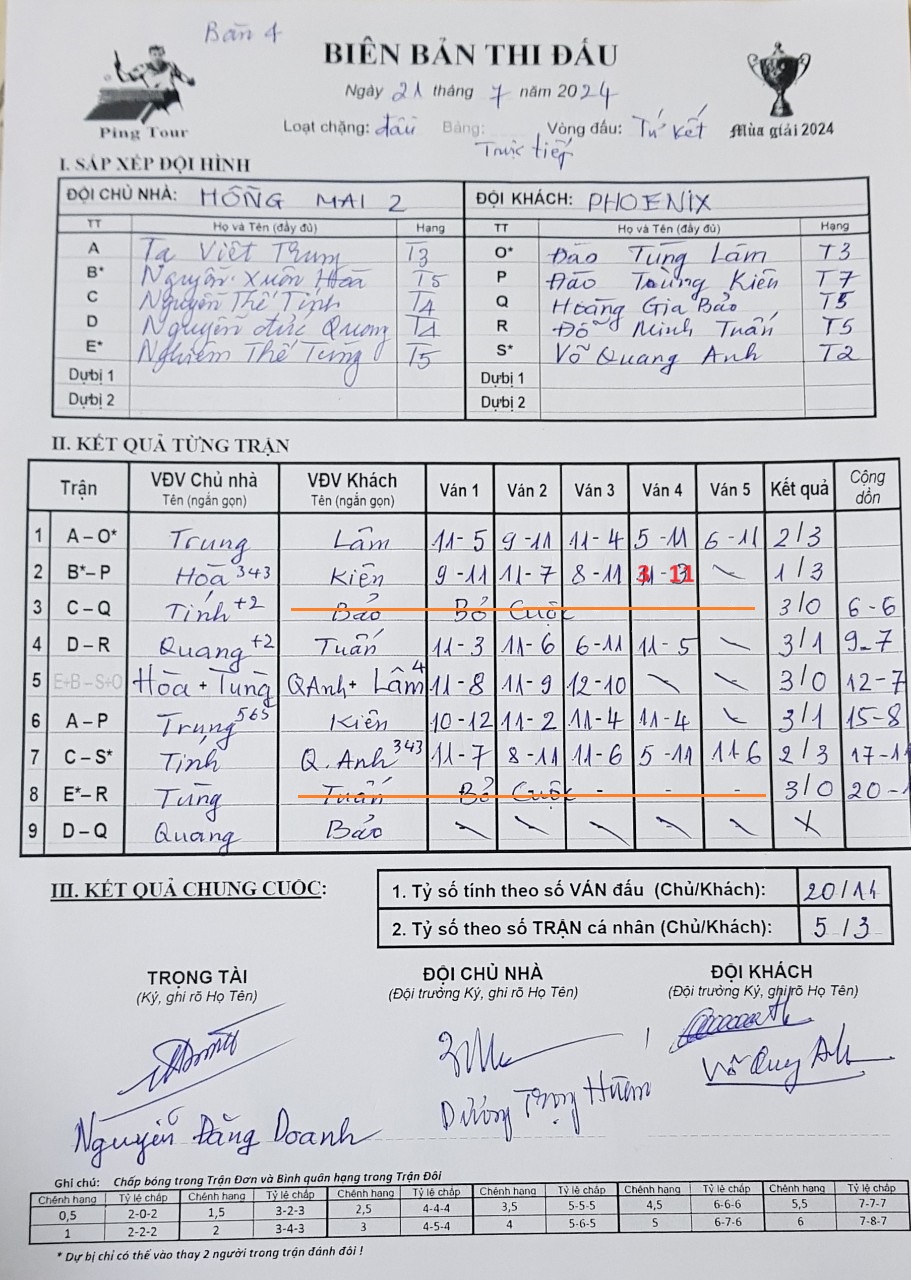 Bàn 4
BIÊN BẢN THI ĐẤU
Ngày 21 tháng 7 năm 2024
Ping Tour
Loại chặng: đấu Bảng: Vòng đấu: Tứ kết
Mùa giải 2024
Trực tiếp
I. SẮP XẾP ĐỘI HÌNH
ĐỘI CHỦ NHÀ: HỒNG MAI 2 ĐỘI KHÁCH: PHOENIX
TT Họ và Tên (đầy đủ) Hạng TT Họ và Tên (đầy đủ) Hạng
A Tạ Viết Trung T3 O* Đào Tùng Lâm T3
B* Nguyễn Xuân Hoà T5 P Đào Trung Kiên T7
C Nguyễn Thế Tính T4 Q Hoàng Gia Bảo T5
D Nguyễn đức Quang T4 R Đỗ Minh Tuấn T5
E* Nghiêm Thế Tùng T5 S* Võ Quang Anh T2
Dự bị 1 Dự bị 1
Dự bị 2 Dự bị 2
II. KẾT QUẢ TỪNG TRẬN
Trận VĐV Chủ nhà Tên (ngắn gọn) VĐV Khách Tên (ngắn gọn) Ván 1 Ván 2 Ván 3 Ván 4 Ván 5 Kết quả Cộng dồn
1 A – O* Trung Lâm 11-5 9-11 11-4 5-11 6-11 2/3
2 B*– P Hoà 343 Kiên 9-11 11-7 8-11 3-11 1/3
3 C – Q Tính +2 Bảo Bỏ Cuộc 3/0 6-6
4 D – R Quang +2 Tuấn 11-3 11-6 6-11 11-5 3/1 9-7
5 E+B – S+O Hòa + Tùng QAnh + Lâm 4 11-8 11-9 12-10 3/0 12-7
6 A – P Trung 565 Kiên 10-12 11-2 11-4 11-4 3/1 15-8
7 C – S* Tính Q. Anh 343 11-7 8-11 11-6 5-11 11-6 2/3 17-11
8 E*– R Tùng Tuấn Bỏ Cuộc - - - 3/0 20-1
9 D – Q Quang Bảo X
III. KẾT QUẢ CHUNG CUỘC:
1. Tỷ số tính theo số VÁN đấu (Chủ/Khách): 20/11
2. Tỷ số theo số TRẬN cá nhân (Chủ/Khách): 5/3
TRỌNG TÀI ĐỘI CHỦ NHÀ ĐỘI KHÁCH
(Ký, ghi rõ Họ Tên) (Đội trưởng Ký, ghi rõ Họ Tên) (Đội trưởng Ký, ghi rõ Họ Tên)
Nguyễn Đăng Doanh Dương Trọng
Ghi chú: Chấp bóng trong Trận Đơn và Bình quân hạng trong Trận Đôi
Chênh hạng Tỷ lệ chấp Chênh hạng Tỷ lệ chấp Chênh hạng Tỷ lệ chấp Chênh hạng Tỷ lệ chấp Chênh hạng Tỷ lệ chấp Chênh hạng Tỷ lệ chấp
0,5 2-0-2 1,5 3-2-3 2,5 4-4-4 3,5 5-5-5 4,5 6-6-6 5,5 7-7-7
1 2-2-2 2 3-4-3 3 4-5-4 4 5-6-5 5 6-7-6 6 7-8-7
* Dự bị chỉ có thể vào thay 2 người trong trận đánh đôi !